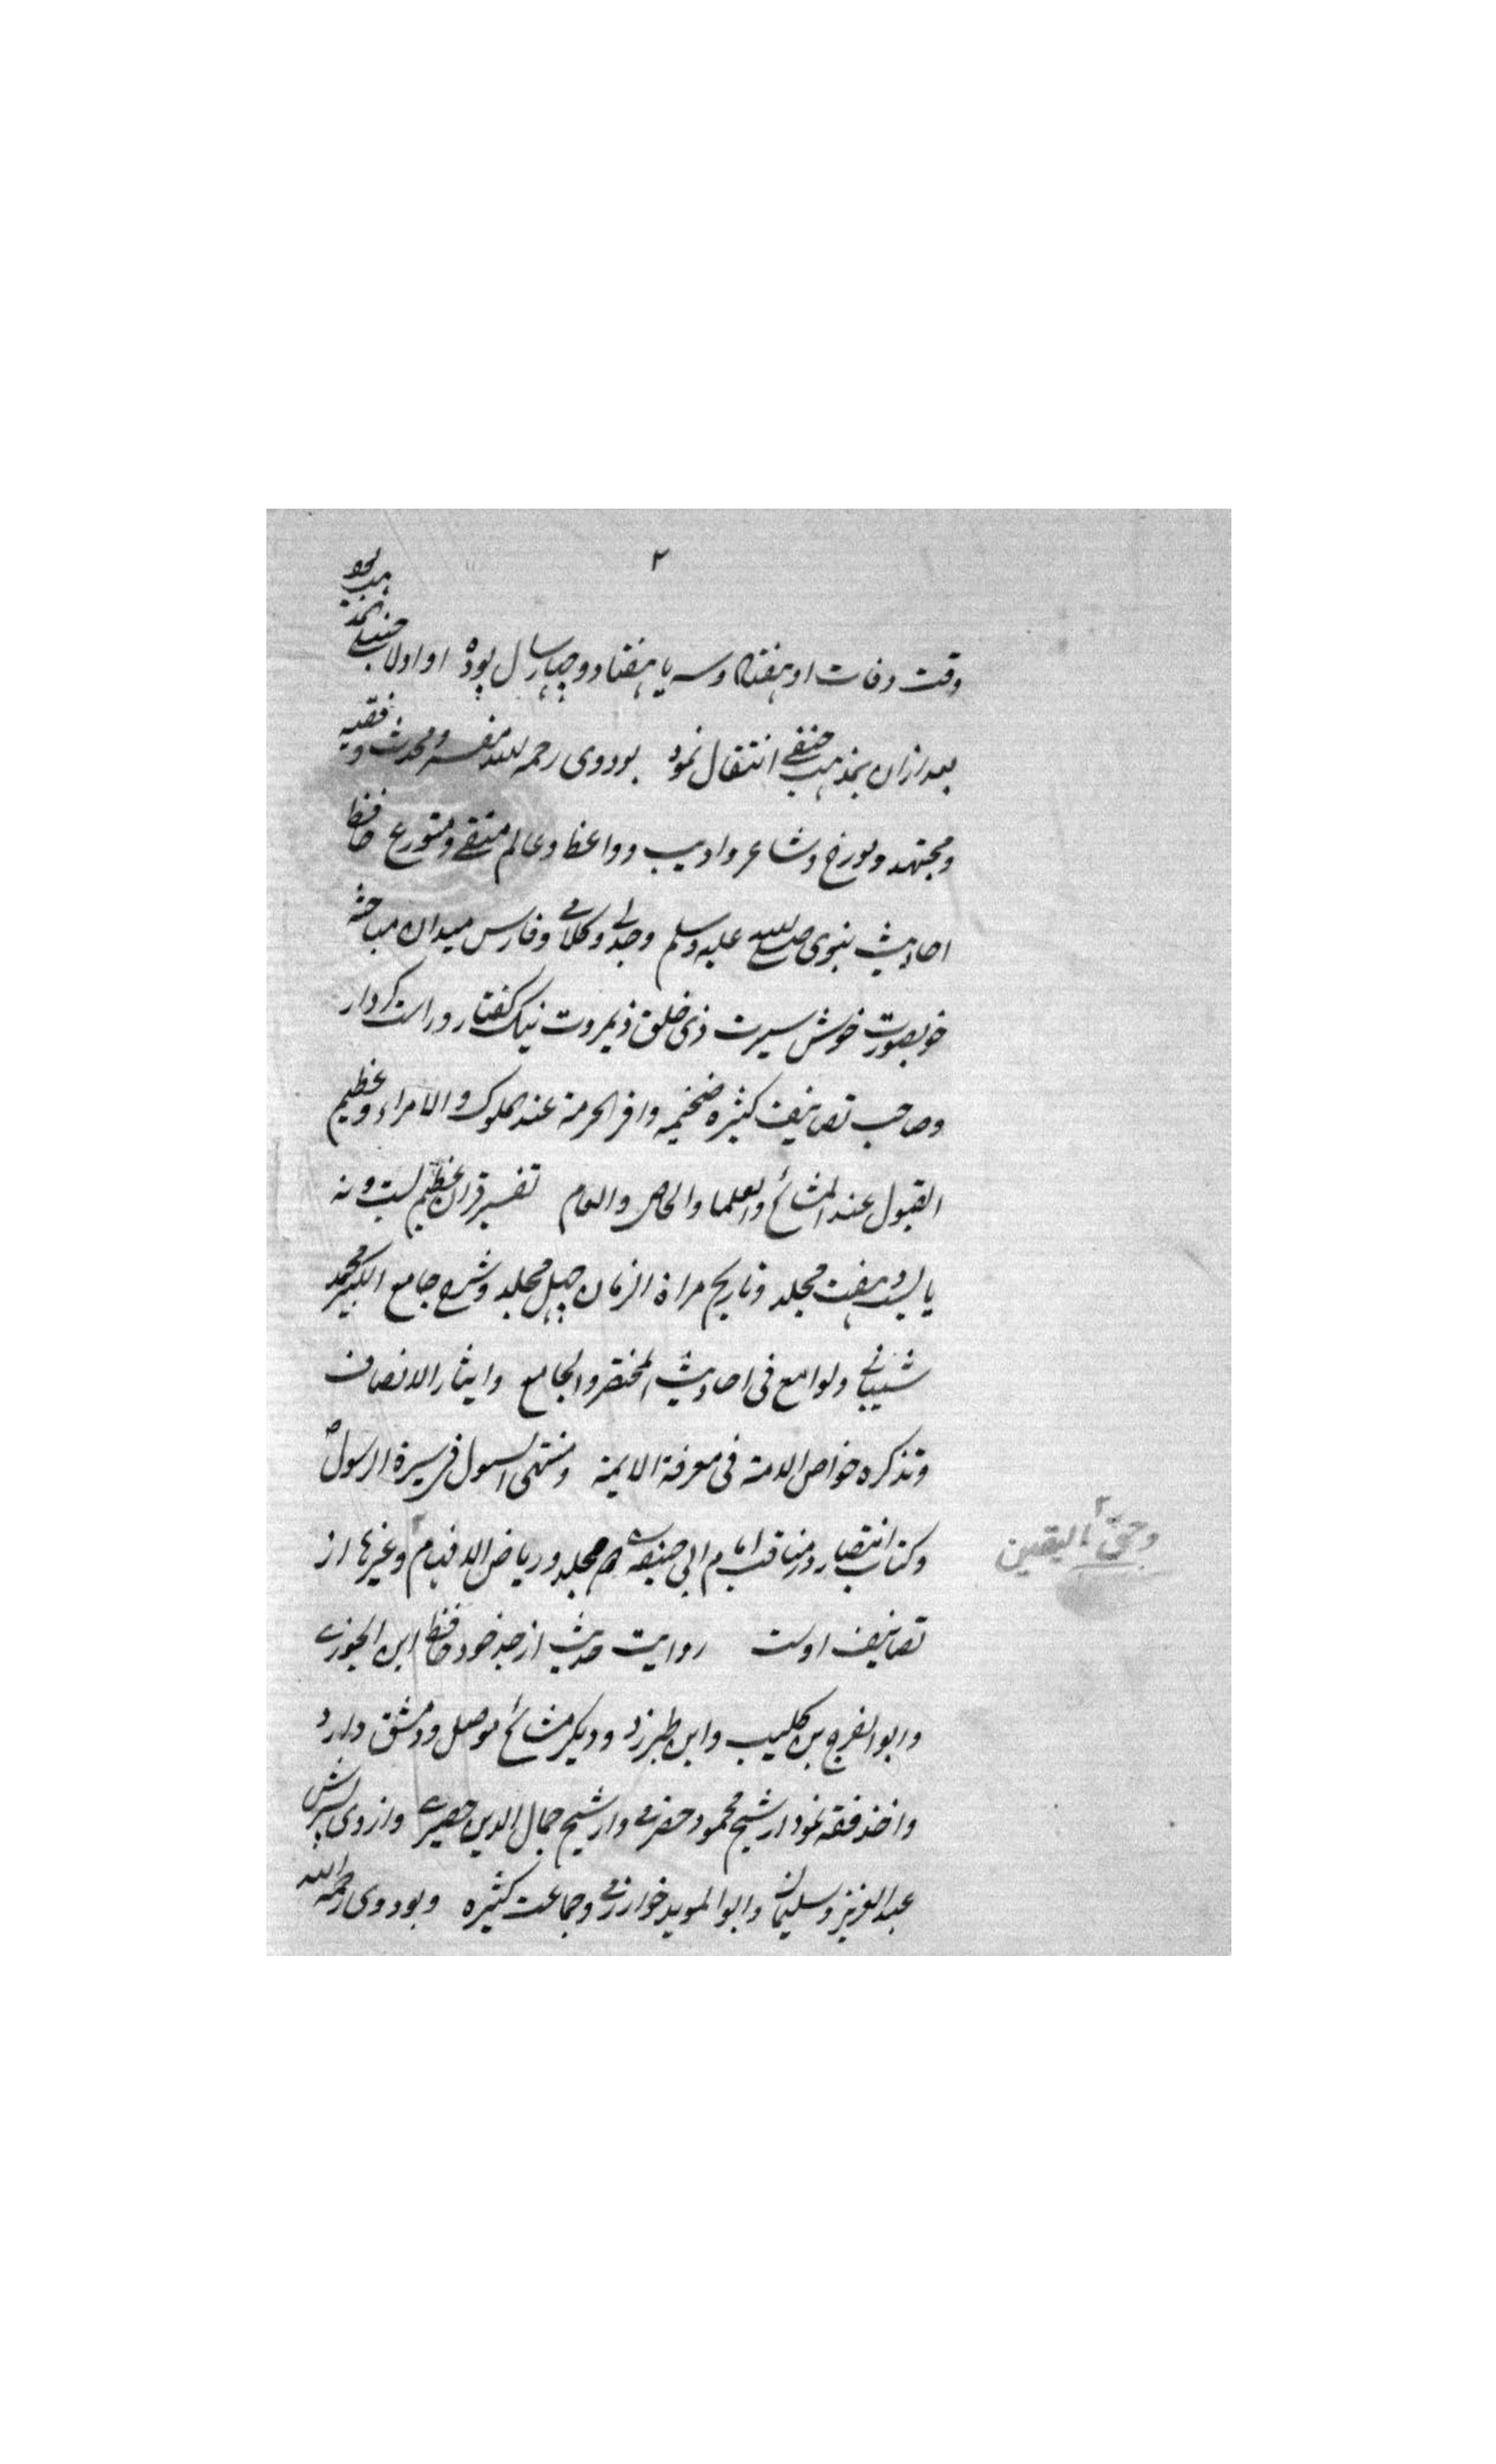 ۲
وقت وفات او هفتاد و سه یا هفتاد و چهار سال بوده او اولا حنبلی المذهب بود
بعد ازان بمذهب حنفی انتقال نمود بود وی رحمه الله مفسر و محدث و فقیه
و مجتهد و مورخ و شاعر و ادیب و واعظ و عالم متقی و متورع حافظ
احادیث نبوی صلی الله علیه وسلم وجدلی و کلامی و فارس میدان مباحثه
خوبصورت خوش سیرت ذی خلق ذیمروت نیک گفتار و راست کردار
وصاحب تصانیف کثیره ضخیمه وافر الحرمة عند الملوک والامراء وعظیم
القبول عند المشائخ والعلماء والخاص والعام تفسیر قران عظیم بست و نه
یا بست و هفت مجلد و تاریخ مراة الزمان چهل مجلد و شرح جامع الکبیر محمد
شیبانی و لوامع فی احادیث المختصر والجامع وایثار الانصاف
و تذکره خواص الامة فی معرفة الایمة و منتهی السول فی سیرة الرسول
و کتاب انتصار در مناقب امام ابی حنیفه مجلد و ریاض الافهام وغیرها از
وحق الیقین
تصانیف اوست روایت حدیث از جد خود حافظ ابن الجوزی
وابو الفرج بن کلیب وابن طبرزد و دیگر مشائخ موصل و دمشق دارد
واخذ فقه نمود از شیخ محمود حضرمی و از شیخ جمال الدین حصیری و از وی پسرش
عبد العزیز و سلیمان وابو الموید خوارزمی وجماعت کثیره و بود وی رحمه الله